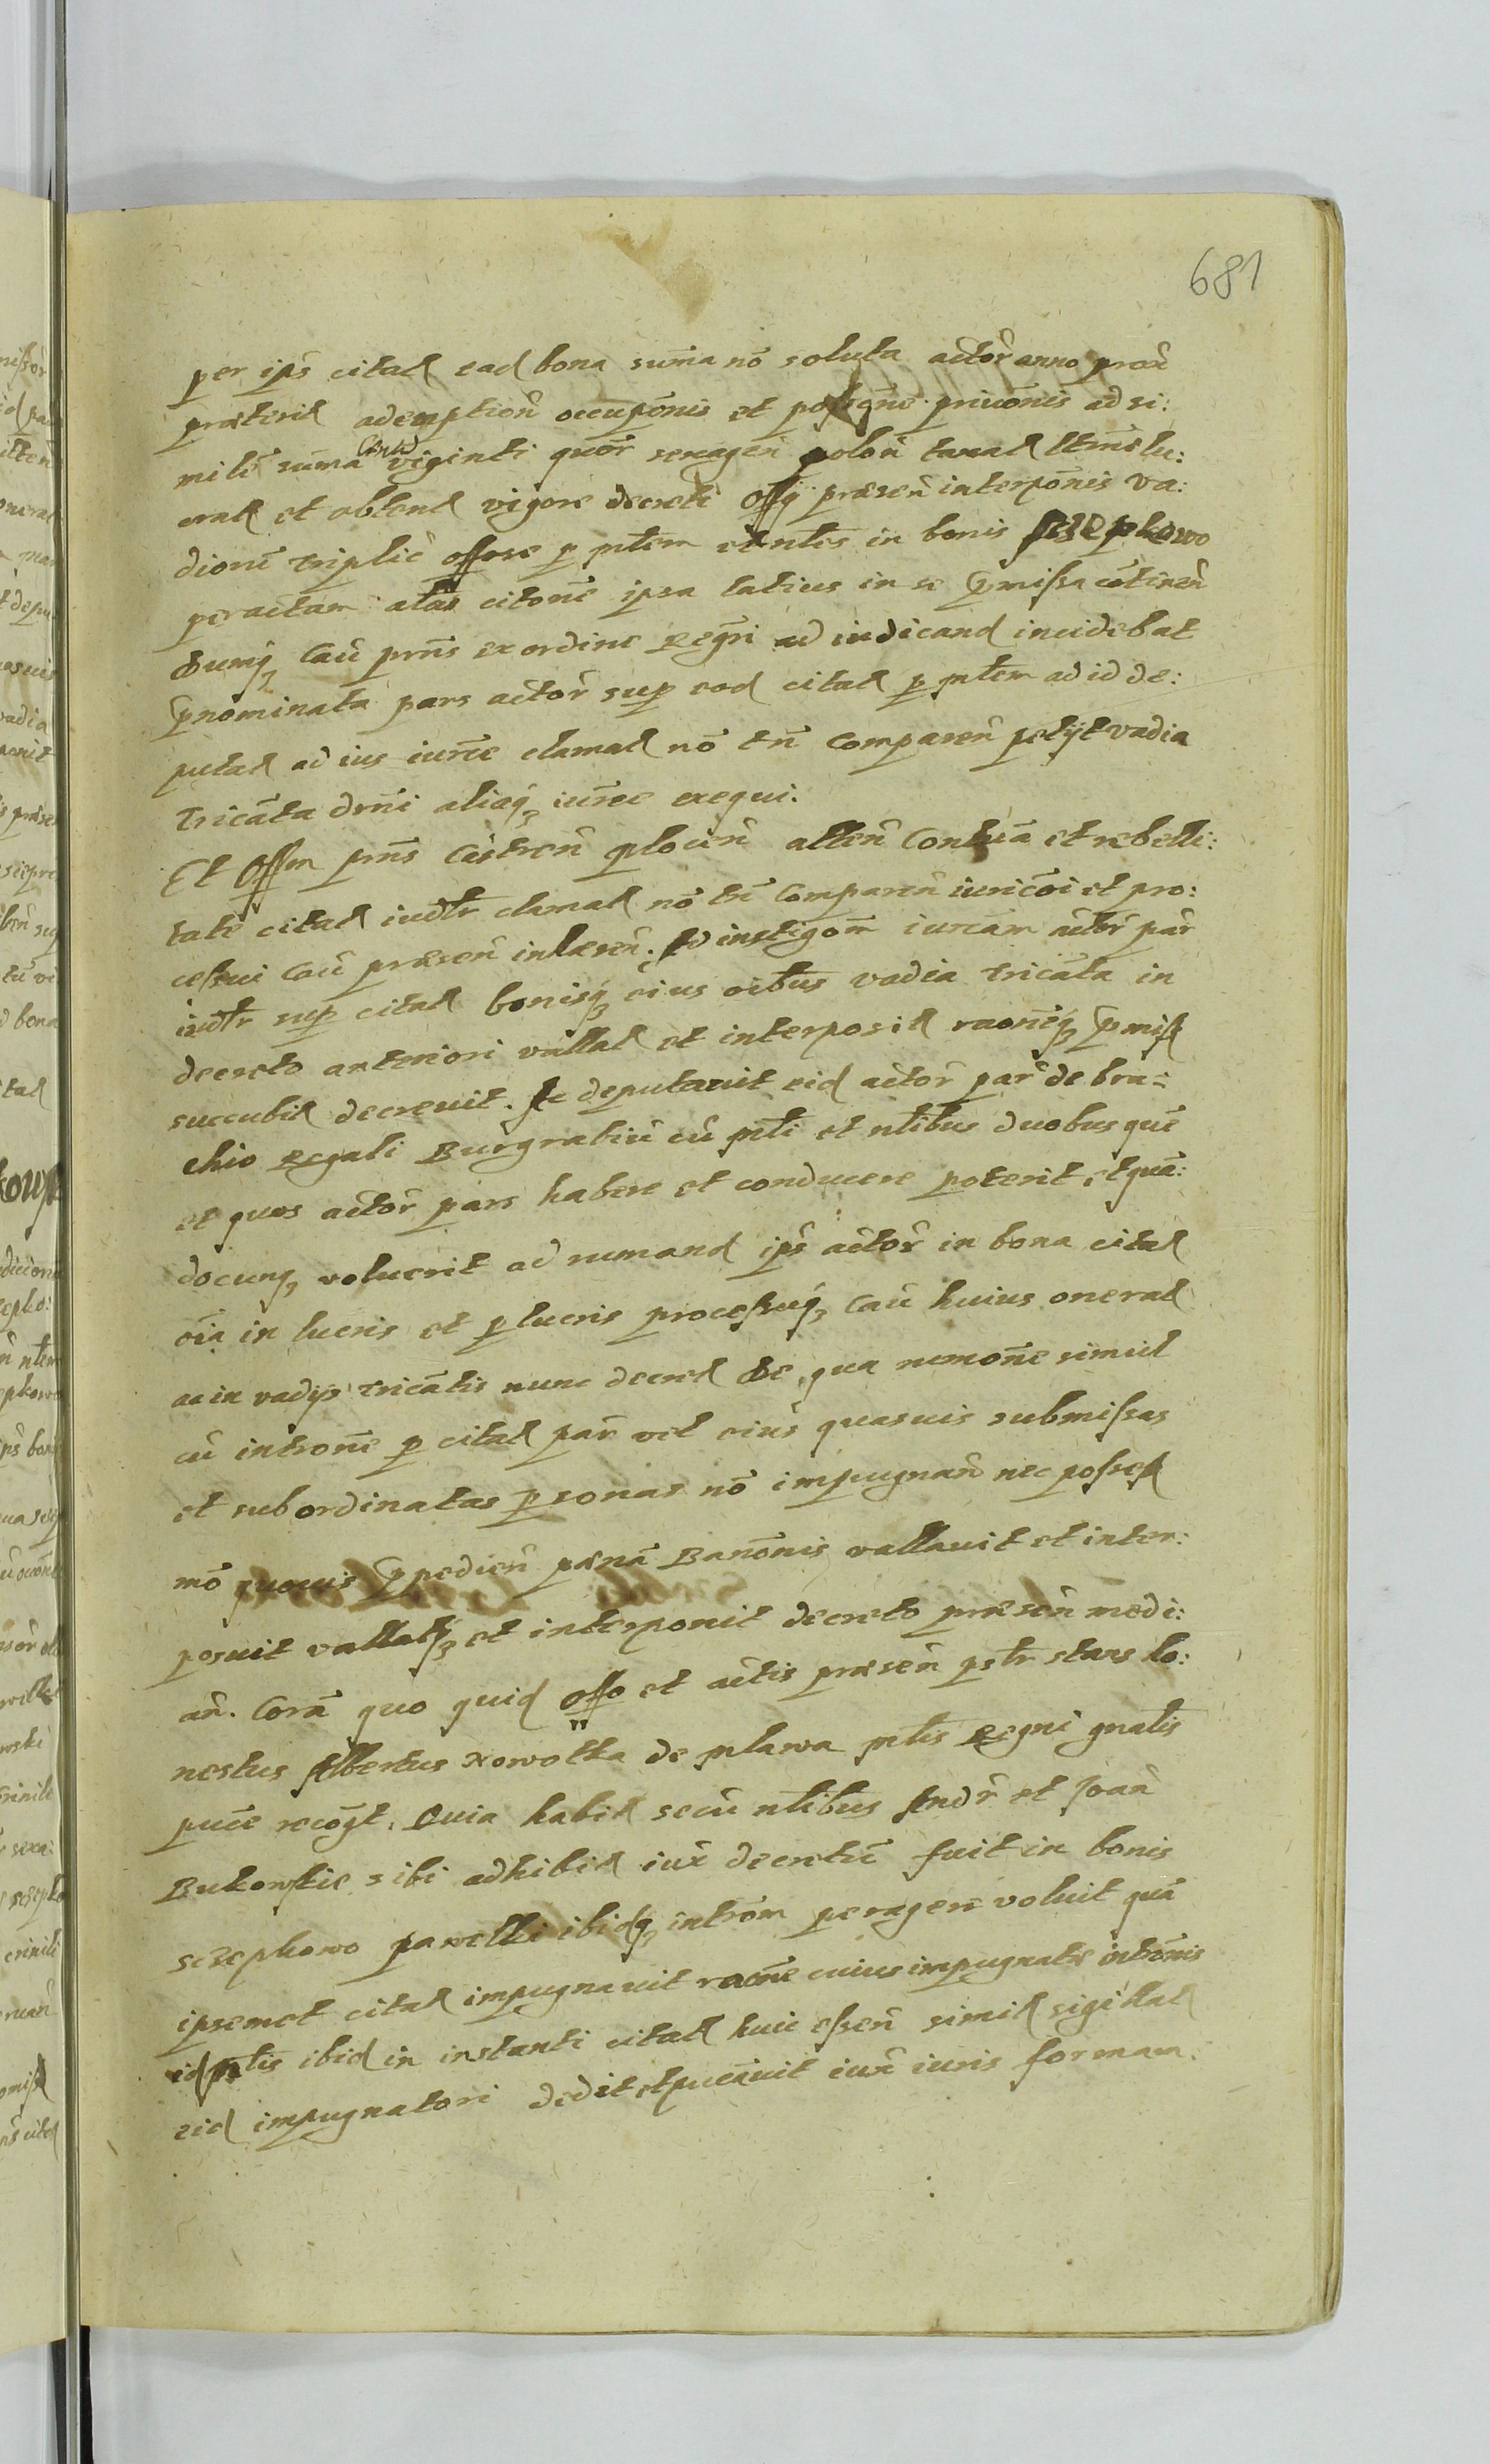 681
per ips citat ead bona suma nō soluta actor anno prox
præterit ademption occupōnis et poss̄ōne priuōnis ad si:
mile suma viginti quor sexagen polon taxat ltmē lu:
crat et obtent vigore decreti Offi præsen interponis va:
dione triplic offose p mltem et nltes in bonis Sczepkowo
peractam alās citone ipsa latius in se p̄missa cōtinen
Dumq Cau prns ex ordine Regri ad iudicand incidebat
p̄nominata pars actor sup eod citat p mltem ad id de:
putat ad ius iurce clamat nō tn Comparen petijt vadia
tricāta drni aliaq iuree exequi.
Et Offm prns Castren plocen atten Contuā et rebelli:
tate citat iudlr clamat nō tn Comparen iuricōi et pro:
cessui Cau præsen inhæren. Ad instigom iurcam actor par
iudlr sup citat bonisq eius oibus vadia tricāta in
decreto anteriori vallat et interposit raoneq p̄miss
succubit decreuit. Ac deputauit eid actor par de bra=
chio Regali Burgrabiu cū mlti et nltibus duobus que
et quos actor pars habere et conducere poterit, et quā:
docunq voluerit ad rumand ips actor in bona citat
oīa in lucris et p lucris processuq Cau huius onerat
ac in vadijs tricātis nunc decret De qua rumone simul
cū introne p citat par vel eius quasuis submissas
et subordinatas p̄sonas nō impugnan nec possess
mō quouis p̄pedien pænā Banonis vallauit et inter:
posuit vallatq et interponit decreto præsen medi:
an. Corā quo quid Offo et actis præsen pslr stans ho:
nestus Albertus Nowotka de plawa mltis Regni gnalis
puce recogt. Quia habit secū nltibus Andr et Joan
Bukowskie sibi adhibit iux decretū fuit in bonis
sczepkowo pawelki ibidq introm peragere voluit quā
ipsemet citat impugnauit raone cuius impugnatæ intrōnis
id mltis ibid in instanti citat huic essen simil sigillat
eid impugnatori dedit et pucauit iux iuris formam.